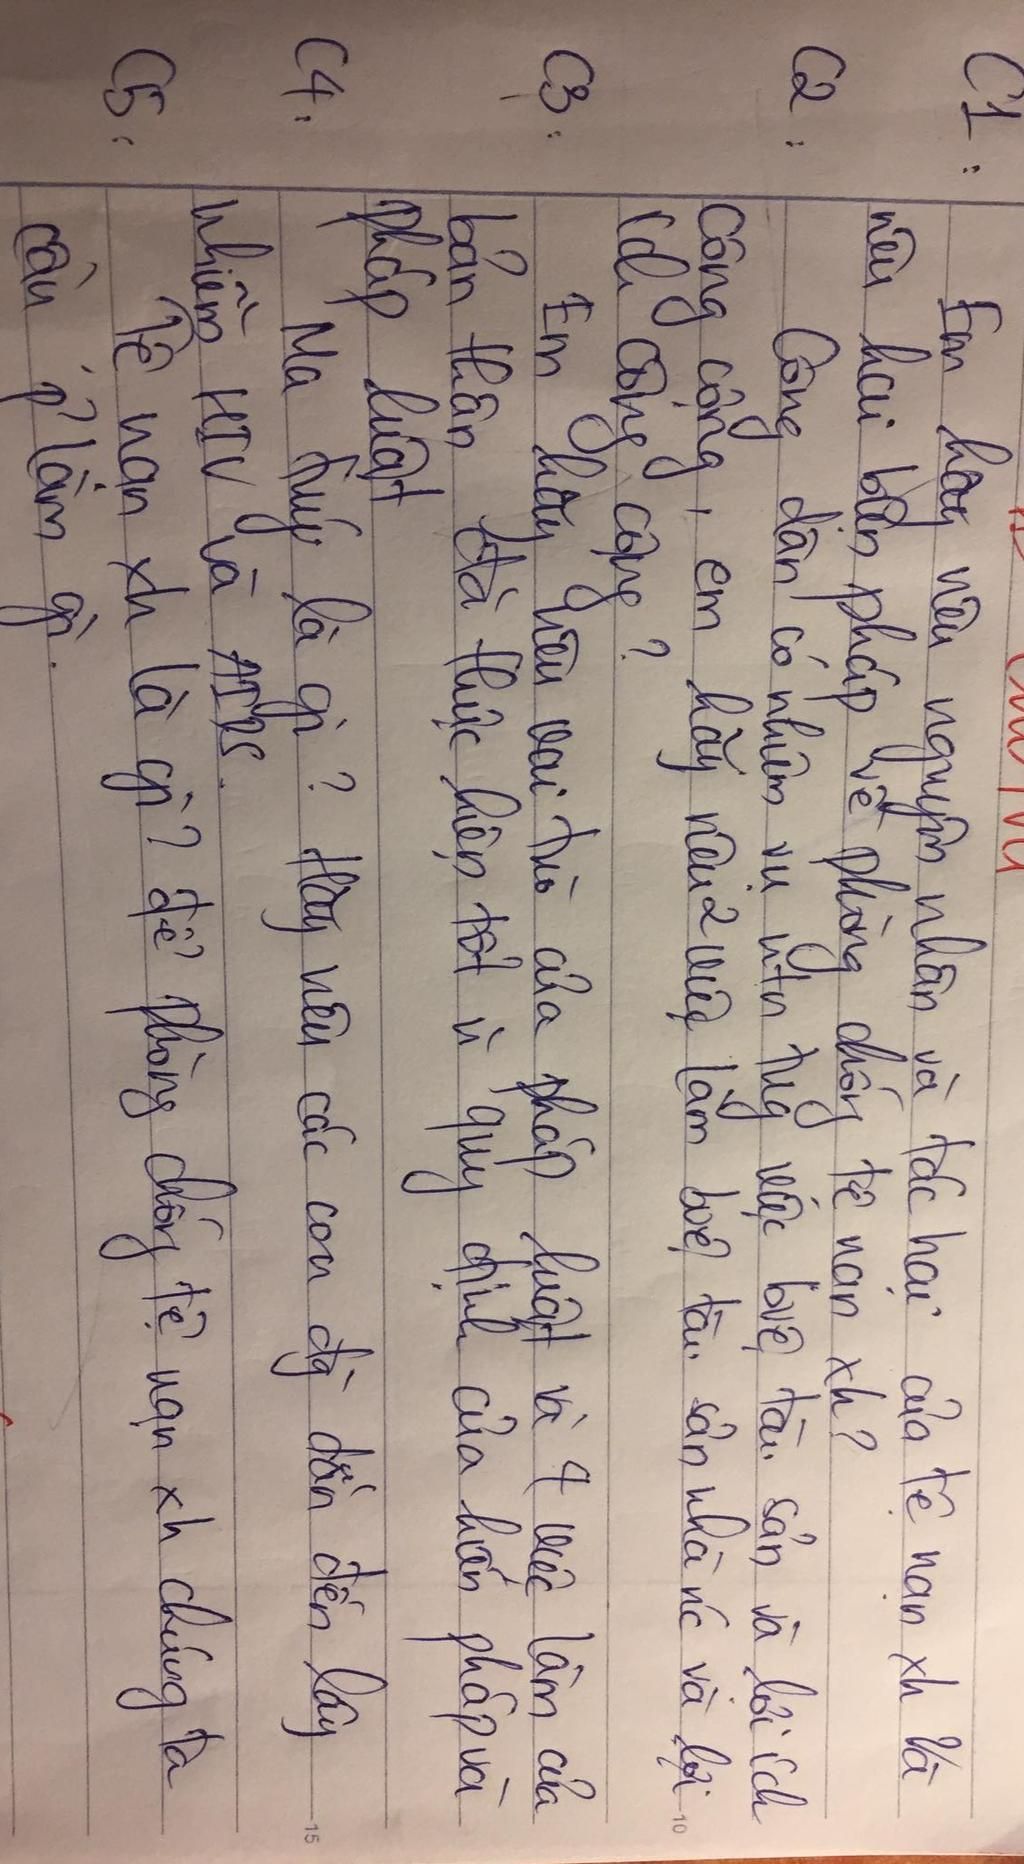 C1: Em hãy nêu nguyên nhân và tác hại của tệ nạn xh và
nêu hai biện pháp về phòng chống tệ nạn xh?
C2: Công dân có nhiệm vụ ntn trg việc bvệ tài sản và lợi ích
công cộng, em hãy nêu 2 việc làm bvệ tài sản nhà nc và lợi
ích công cộng?
C3: Em hãy nêu vai trò của pháp luật và 4 việc làm của
bản thân đã thực hiện tốt quy định của hiến pháp và
pháp luật
C4: Ma túy là gì? Hãy nêu các con đg dẫn đến lây
nhiễm HIV và AIDS.
C5: Tệ nạn xh là gì? để phòng chống tệ nạn xh chúng ta
cần p? làm gì.